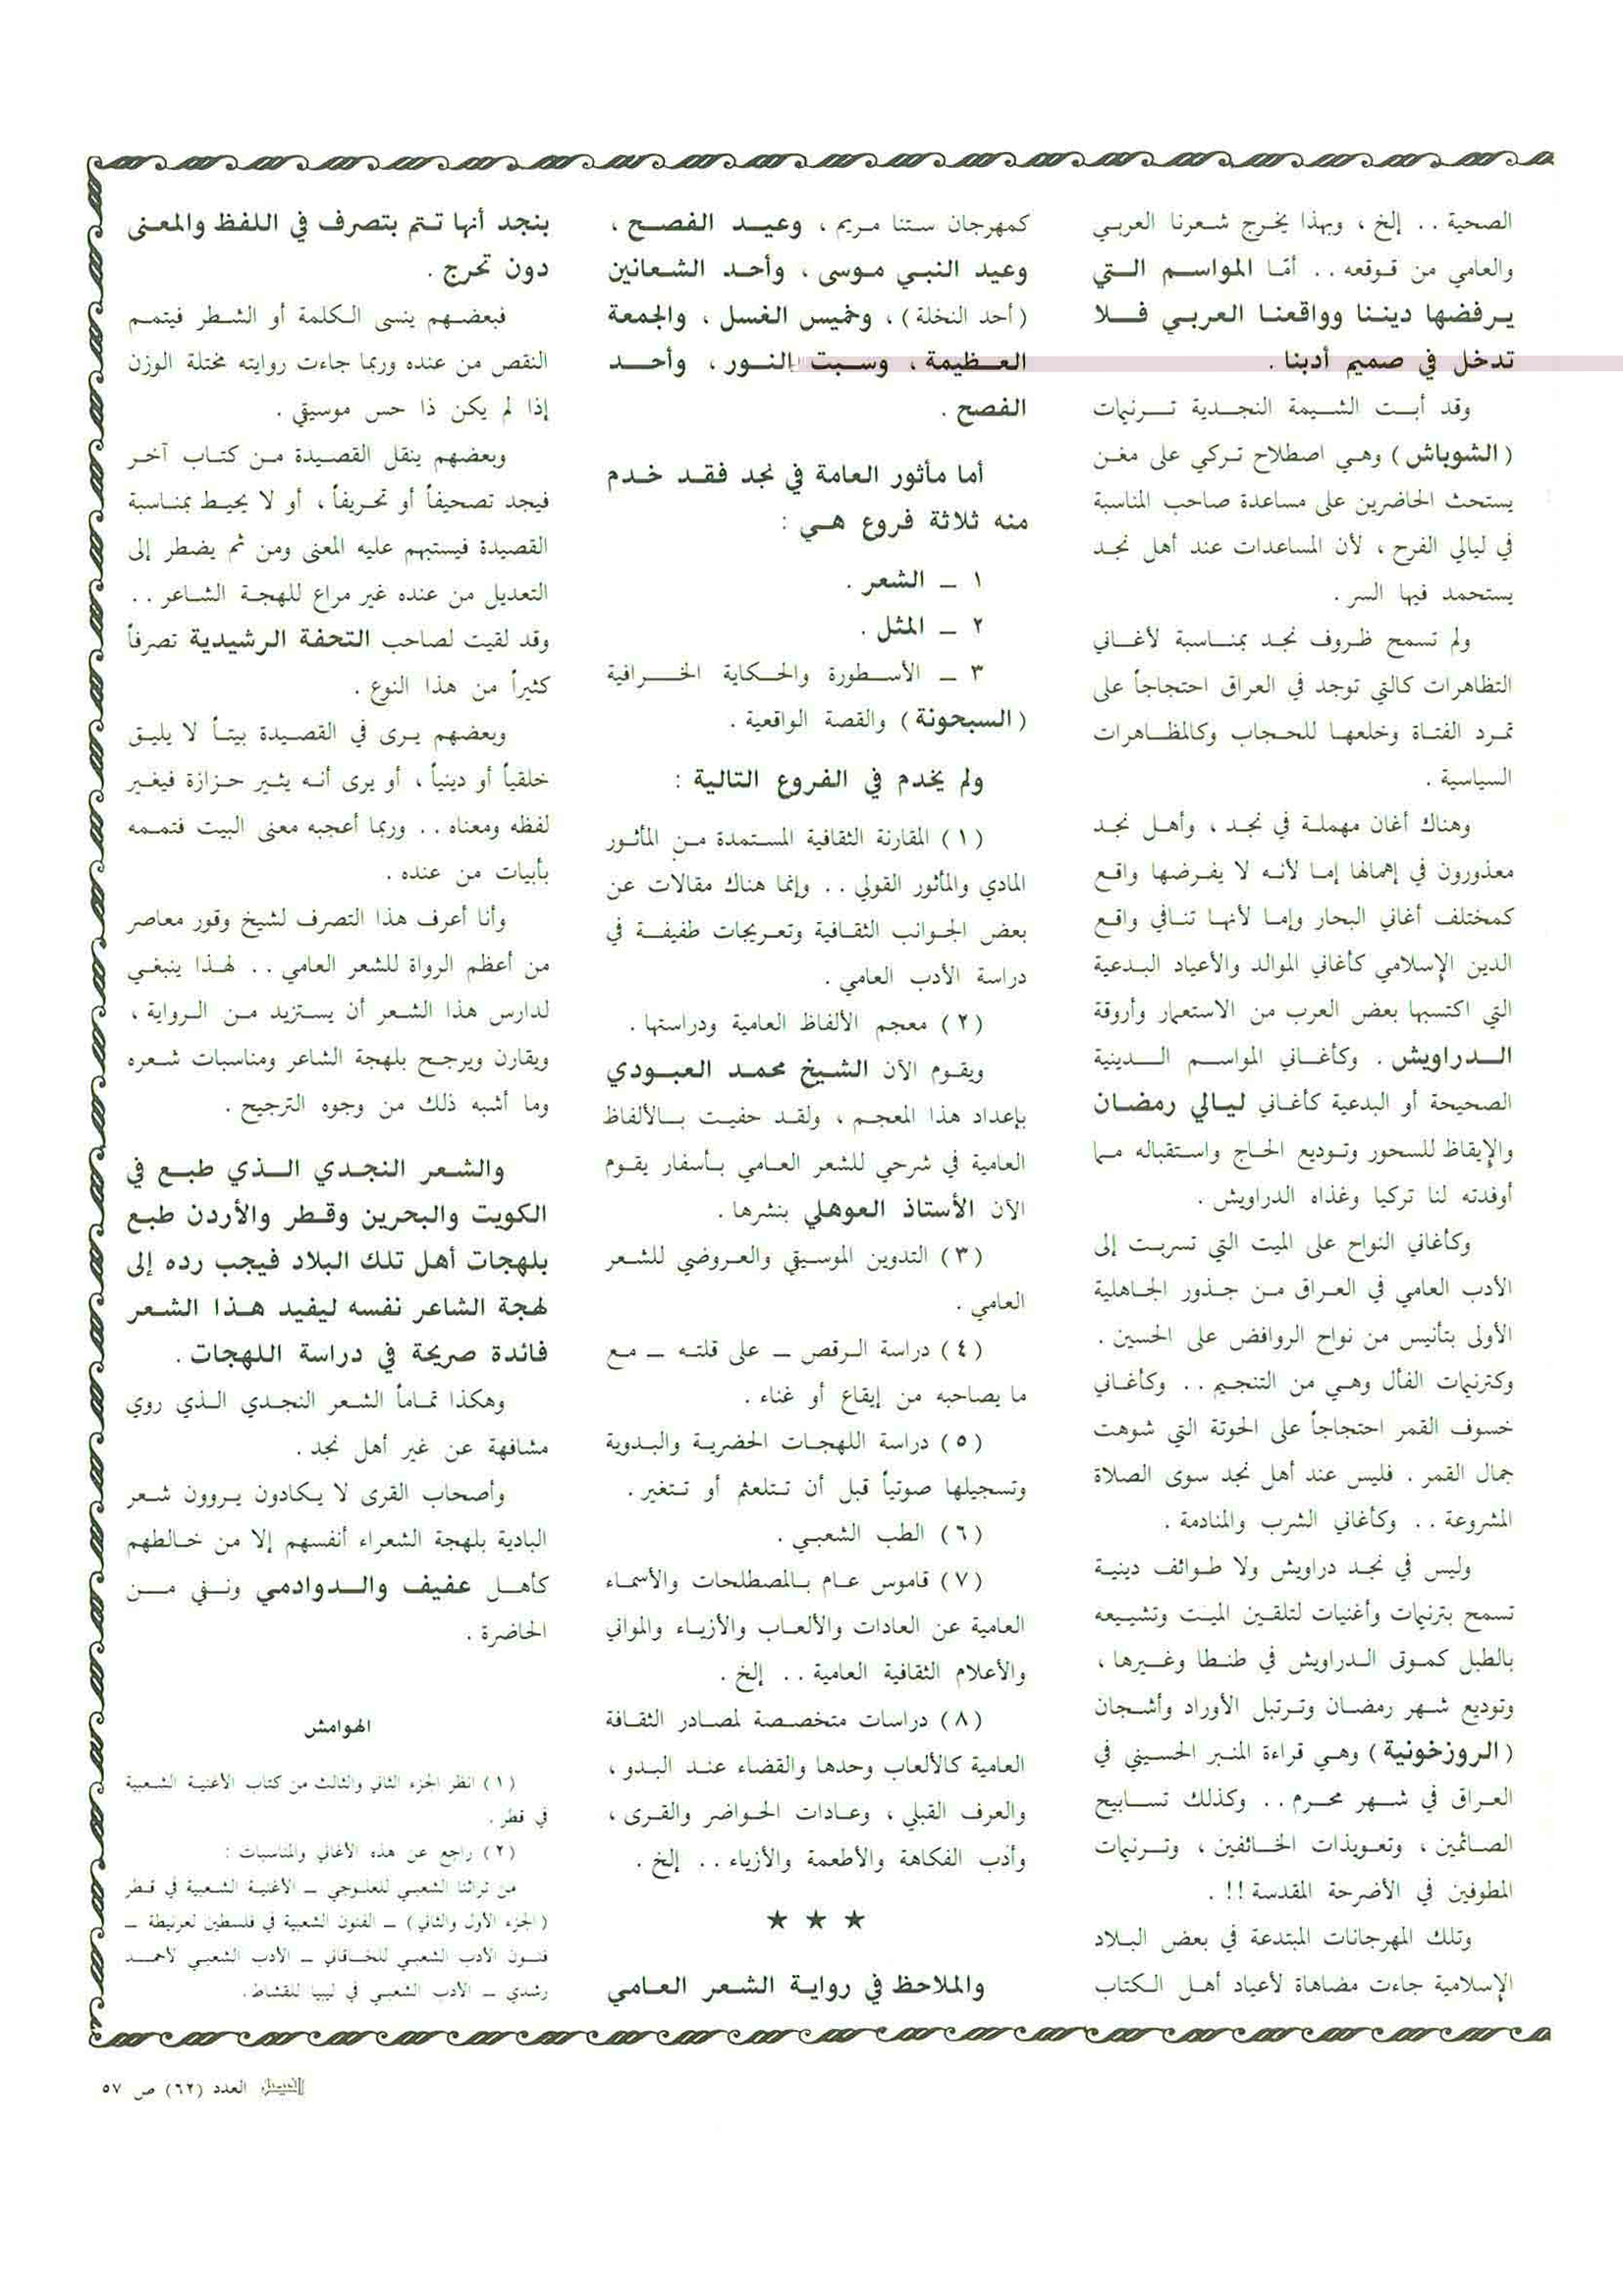 الصحية .. إلخ ، وبهذا يخرج شعرنا العربي
والعامي من قوقعه .. أمّا المواسم التي
يرفضها ديننا وواقعنا العربي فلا
تدخل في صميم أدبنا .
وقد أبت الشيمة النجدية ترنيمات
( الشوباش ) وهي اصطلاح تركي على مغن
يستحث الحاضرين على مساعدة صاحب المناسبة
في ليالي الفرح ، لأن المساعدات عند أهل نجد
يستحمد فيها السر .
ولم تسمح ظروف نجد بمناسبة لأغاني
التظاهرات كالتي توجد في العراق احتجاجاً على
تمرد الفتاة وخلعها للحجاب وكالمظاهرات
السياسية .
وهناك أغان مهملة في نجد ، وأهل نجد
معذورون في إهمالها إما لأنه لا يفرضها واقع
كمختلف أغاني البحار وإما لأنها تنافي واقع
الدين الإسلامي كأغاني الموالد والأعياد البدعية
التي اكتسبها بعض العرب من الاستعمار وأروقة
الدراويش . وكأغاني المواسم الدينية
الصحيحة أو البدعية كأغاني ليالي رمضان
والإيقاظ للسحور وتوديع الحاج واستقباله مما
أوفدته لنا تركيا وغذاه الدراويش .
وكأغاني النواح على الميت التي تسربت إلى
الأدب العامي في العراق من جذور الجاهلية
الأولى بتأنيس من نواح الروافض على الحسين .
وكترنيمات الفأل وهي من التنجيم .. وكأغاني
خسوف القمر احتجاجاً على الحوتة التي شوهت
جمال القمر . فليس عند أهل نجد سوى الصلاة
المشروعة .. وكأغاني الشرب والمنادمة .
وليس في نجد دراويش ولا طوائف دينية
تسمح بترنيمات وأغنيات لتلقين الميت وتشييعه
بالطبل كموتى الدراويش في طنطا وغيرها ،
وتوديع شهر رمضان وترتيل الأوراد وأشجان
( الروزخونية ) وهي قراءة المنبر الحسيني في
العراق في شهر محرم .. وكذلك تسابيح
الصائمين ، وتعويذات الخائفين ، وترنيمات
المطوفين في الأضرحة المقدسة !! .
وتلك المهرجانات المبتدعة في بعض البلاد
الإسلامية جاءت مضاهاة لأعياد أهل الكتاب
كمهرجان ستنا مريم ، وعيد الفصح ،
وعيد النبي موسى ، وأحد الشعانين
( أحد النخلة ) ، وخميس الغسل ، والجمعة
العظيمة ، وسبت النور ، وأحد
الفصح .
أما مأثور العامة في نجد فقد خدم
منه ثلاثة فروع هي :
١ ـ الشعر .
٢ ـ المثل .
٣ ـ الأسطورة والحكاية الخرافية
( السبحونة ) والقصة الواقعية .
ولم يخدم في الفروع التالية :
( ١ ) المقارنة الثقافية المستمدة من المأثور
المادي والمأثور القولي .. وإنما هناك مقالات عن
بعض الجوانب الثقافية وتعريجات طفيفة في
دراسة الأدب العامي .
( ٢ ) معجم الألفاظ العامية ودراستها .
ويقوم الآن الشيخ محمد العبودي
بإعداد هذا المعجم ، ولقد حفيت بالألفاظ
العامية في شرحي للشعر العامي بأسفار يقوم
الآن الأستاذ العوهلي بنشرها .
( ٣ ) التدوين الموسيقي والعروضي للشعر
العامي .
( ٤ ) دراسة الرقص ـ على قلته ـ مع
ما يصاحبه من إيقاع أو غناء .
( ٥ ) دراسة اللهجات الحضرية والبدوية
وتسجيلها صوتياً قبل أن تتلعثم أو تتغير .
( ٦ ) الطب الشعبي .
( ٧ ) قاموس عام بالمصطلحات والأسماء
العامية عن العادات والألعاب والأزياء والمواني
والأعلام الثقافية العامية .. إلخ .
( ٨ ) دراسات متخصصة لمصادر الثقافة
العامية كالألعاب وحدها والقضاء عند البدو ،
والعرف القبلي ، وعادات الحواضر والقرى ،
وأدب الفكاهة والأطعمة والأزياء .. إلخ .
★ ★ ★
والملاحظ في رواية الشعر العامي
بنجد أنها تتم بتصرف في اللفظ والمعنى
دون تحرج .
فبعضهم ينسى الكلمة أو الشطر فيتمم
النقص من عنده وربما جاءت روايته مختلة الوزن
إذا لم يكن ذا حس موسيقي .
وبعضهم ينقل القصيدة من كتاب آخر
فيجد تصحيفاً أو تحريفاً ، أو لا يحيط بمناسبة
القصيدة فيستبهم عليه المعنى ومن ثم يضطر إلى
التعديل من عنده غير مراع للهجة الشاعر ..
وقد لقيت لصاحب التحفة الرشيدية تصرفاً
كثيراً من هذا النوع .
وبعضهم يرى في القصيدة بيتاً لا يليق
خلقياً أو دينياً ، أو يرى أنه يثير حزازة فيغير
لفظه ومعناه .. وربما أعجبه معنى البيت فتممه
بأبيات من عنده .
وأنا أعرف هذا التصرف لشيخ وقور معاصر
من أعظم الرواة للشعر العامي .. لهذا ينبغي
لدارس هذا الشعر أن يستزيد من الرواية ،
ويقارن ويرجح بلهجة الشاعر ومناسبات شعره
وما أشبه ذلك من وجوه الترجيح .
والشعر النجدي الذي طبع في
الكويت والبحرين وقطر والأردن طبع
بلهجات أهل تلك البلاد فيجب رده إلى
لهجة الشاعر نفسه ليفيد هذا الشعر
فائدة صريحة في دراسة اللهجات .
وهكذا تماماً الشعر النجدي الذي روي
مشافهة عن غير أهل نجد .
وأصحاب القرى لا يكادون يروون شعر
البادية بلهجة الشعراء أنفسهم إلا من خالطهم
كأهل عفيف والدوادمي ونفي من
الحاضرة .
الهوامش
( ١ ) انظر الجزء الثاني والثالث من كتاب الأغنية الشعبية
في قطر .
( ٢ ) راجع عن هذه الأغاني والمناسبات :
من تراثنا الشعبي للعلوجي ـ الأغنية الشعبية في قطر
( الجزء الأول والثاني ) ـ الفنون الشعبية في فلسطين لعرنيطة ـ
فنون الأدب الشعبي للخاقاني ـ الأدب الشعبي لأحمد
رشدي ـ الأدب الشعبي في ليبيا للقشاط .
الفيصل العدد (٦٢) ص ٥٧